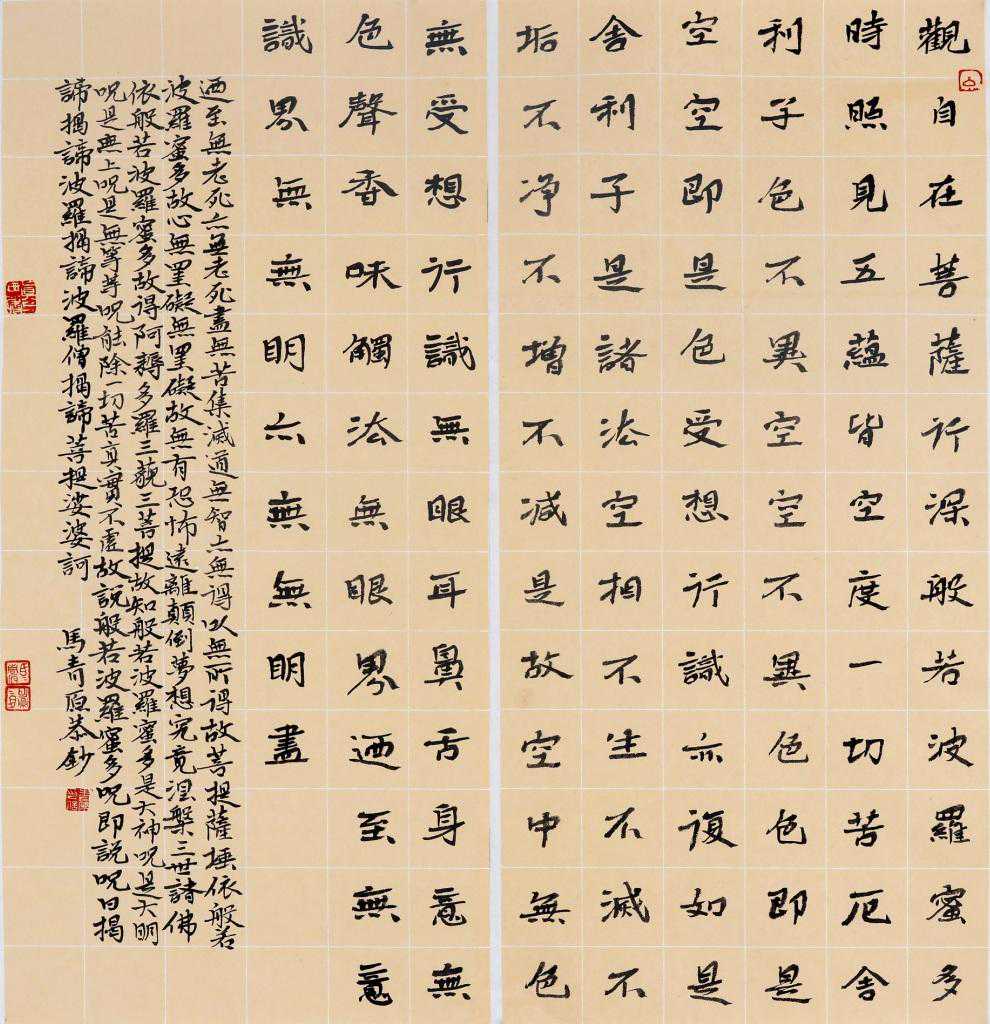 觀自在菩薩行深般若波羅蜜多
時照見五蘊皆空度一切苦厄舍
利子色不異空空不異色色即是
空空即是色受想行識亦復如是
舍利子是諸法空相不生不滅不
垢不净不增不減是故空中無色
無受想行識無眼耳鼻舌身意無
色聲香味觸法無眼界迺至無意
識界無無明亦無無明盡
迺至無老死亦無老死盡無苦集滅道無智亦無得以無所得故菩提薩埵依般若
波羅蜜多故心無罣礙無罣礙故無有恐怖遠離顛倒夢想究竟涅槃三世諸佛
依般若波羅蜜多故得阿耨多羅三藐三菩提故知般若波羅蜜多是大神呪是大明
呪是無上呪是無等等呪能除一切苦真實不虛故說般若波羅蜜多呪即說呪曰揭
諦揭諦波羅揭諦波羅僧揭諦菩提娑婆訶 馬青原恭鈔